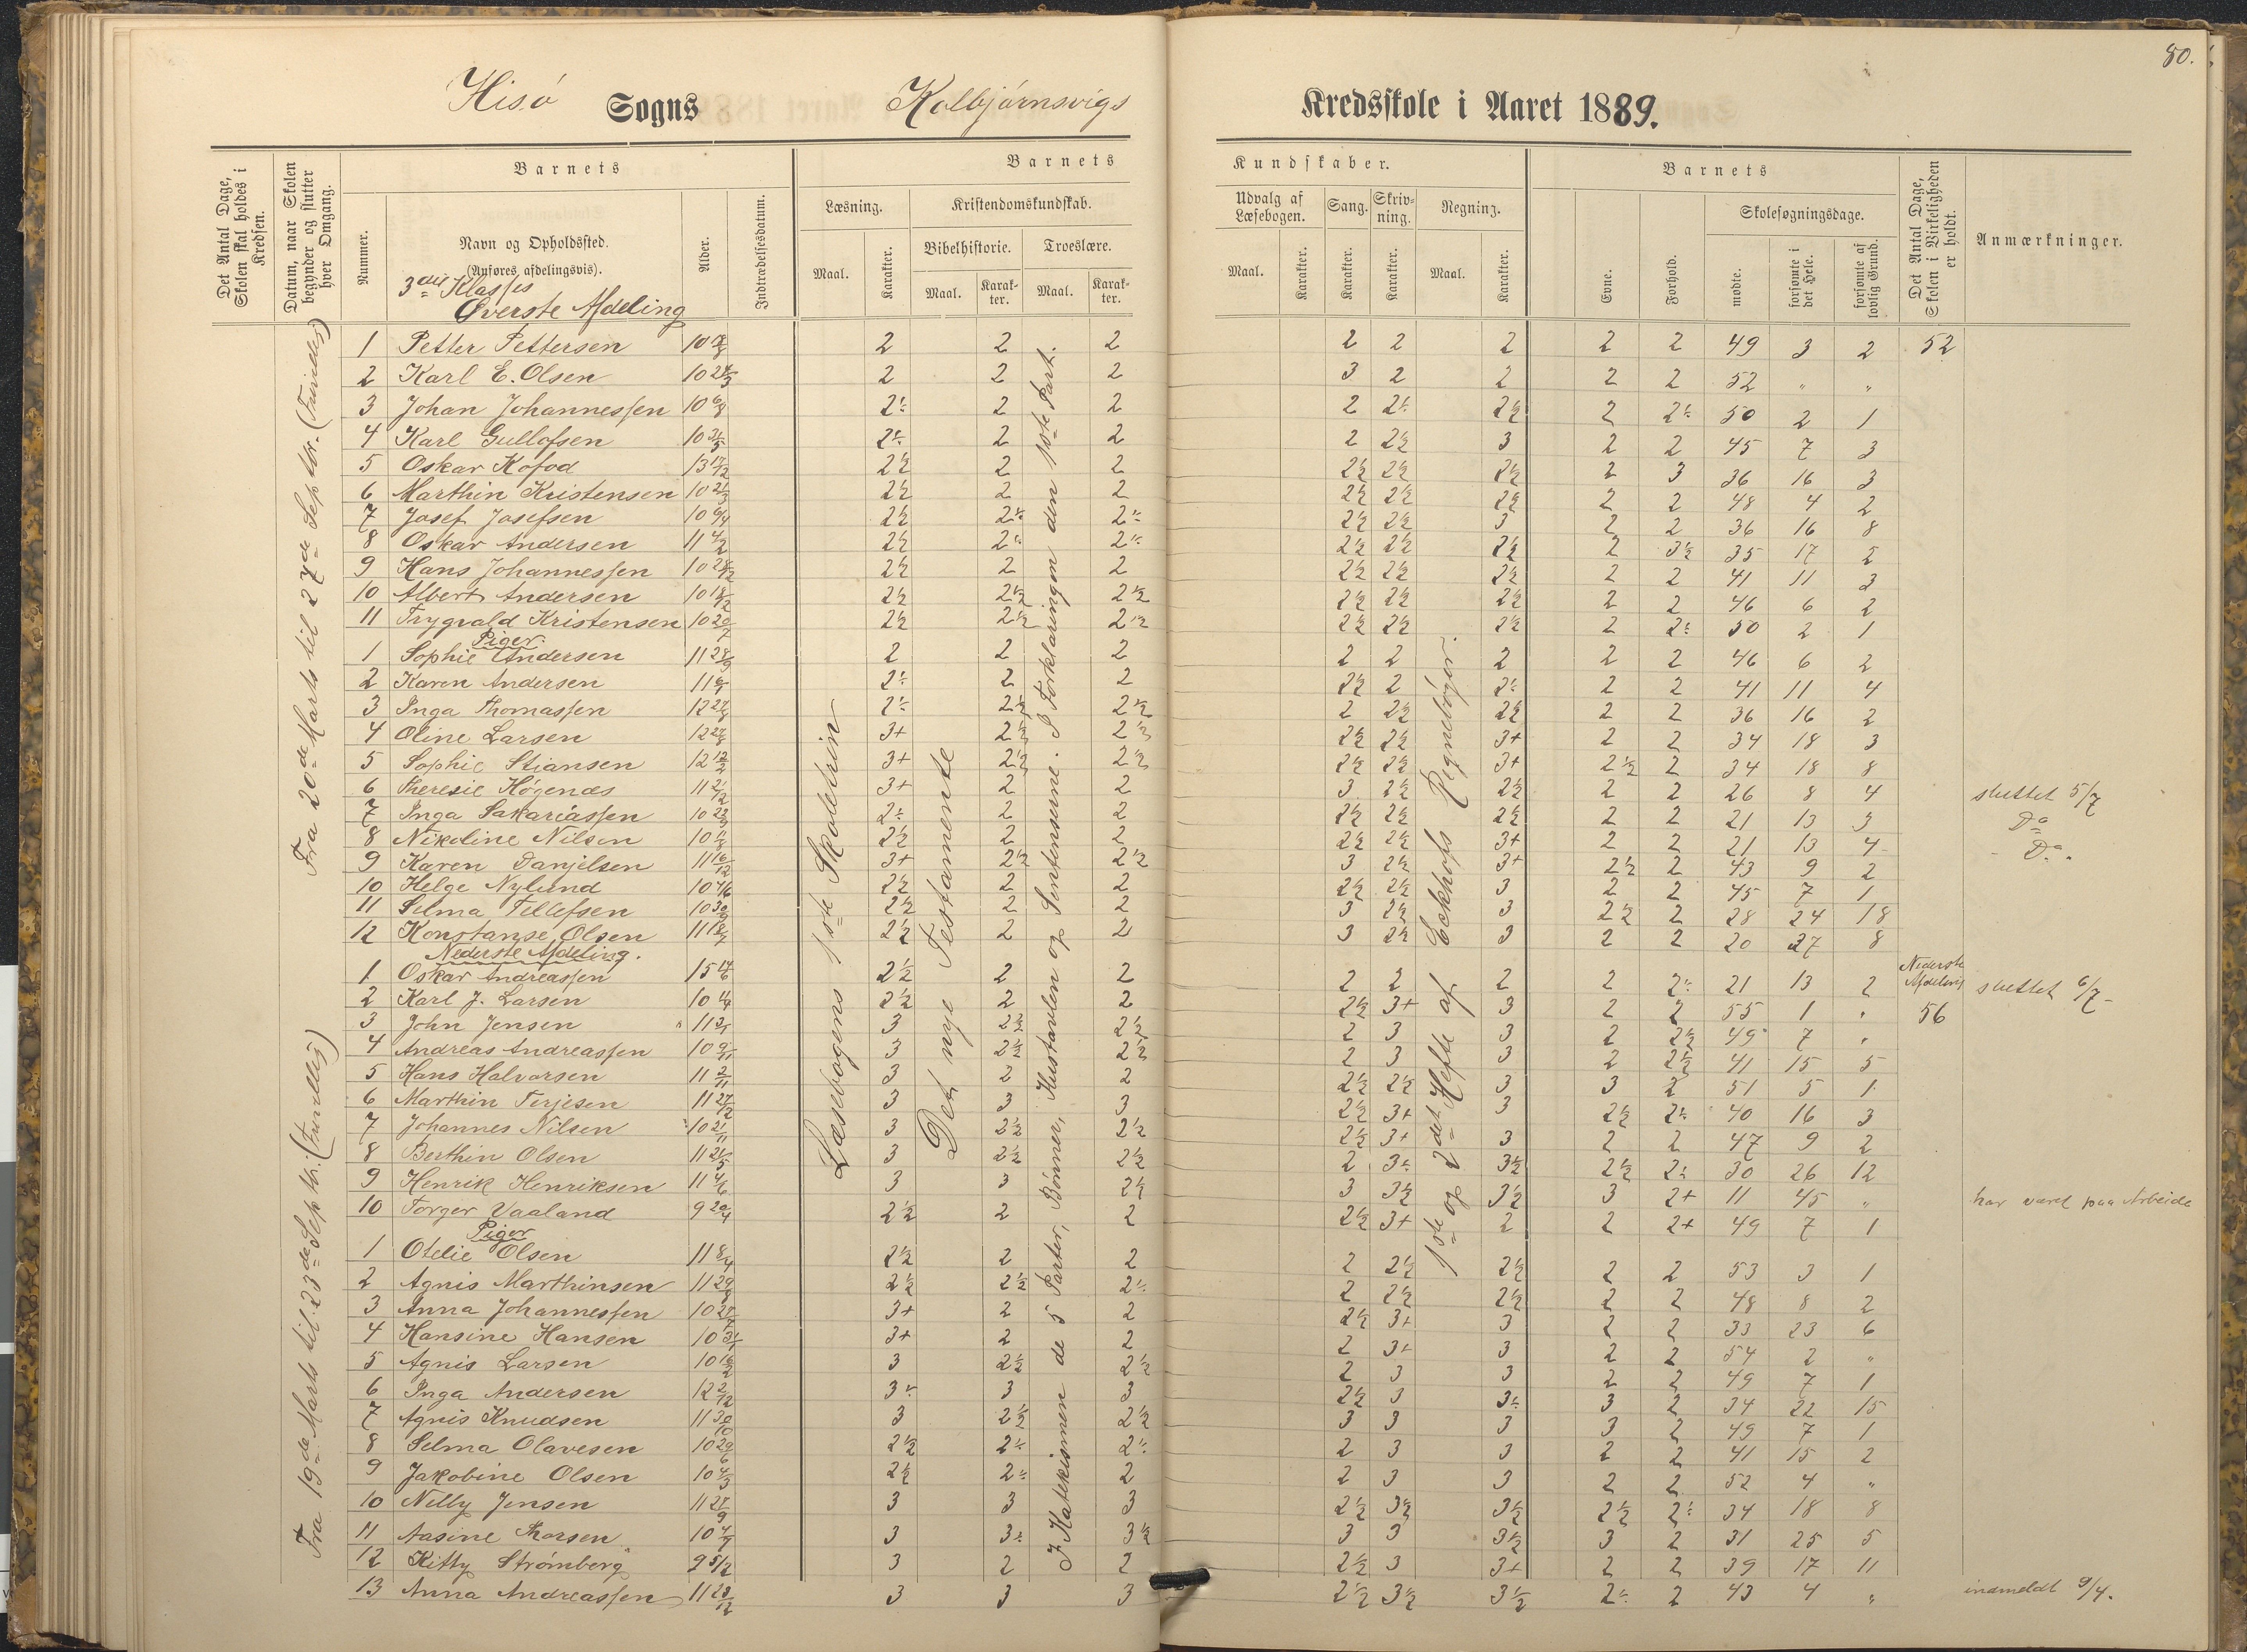 80.
Hisø Sogns Kolbjørnsvigs Kredsskole i Aaret 1889.
Det Antal Dage, Skolen skal holdes i Kredsen.
Datum, naar Skolen begynder og slutter hver Omgang.
Barnets
Nummer.
Navn og Opholdssted.
(Anføres afdelingsvis).
Alder.
Indtrædelsesdatum.
Barnets Kundskaber.
Læsning.
Maal. Karakter.
Kristendomskundskab.
Bibelhistorie. Troeslære.
Maal. Karakter. Maal. Karakter.
Udvalg af Læsebogen.
Maal. Karakter.
Sang. Karakter.
Skrivning. Karakter.
Regning.
Maal. Karakter.
Barnets
Evne. Forhold.
Skolesøgningsdage.
mødte. forsømte i det Hele. forsømte af lovlig Grund.
Det Antal Dage, Skolen i Virkeligheden er holdt.
Anmærkninger.
3die Klasses
Øverste Afdeling
Fra 20de Marts til 27de Septbr. (Fremdeles)
Fra 19de Marts til 23de Septbr. (Fremdeles)
Læsebogens 1ste Skoletrin
Det nye Testamente
I Katekismen de 5 Parter, Bønner, Hustavlen og Sentenserne. I Forklaringen den 1ste Part.
1ste og 2det Hefte af Eckhofs Regnebøger.
1 Petter Pettersen 2 2 2 2 2 2 2 2 49 3 2 52
2 Karl E. Olsen 2 2 2 3 2 2 2 2 52 " "
3 Johan Johannessen 10 6/8 2÷ 2 2 2 2÷ 2½ 2 2÷ 50 2 1
4 Karl Gullofsen 10 2÷ 2 2 2 2½ 3 2 2 45 7 3
5 Oskar Kofod 13 17/12 2½ 2 2 2½ 2½ 2½ 2 3 36 16 3
6 Marthin Kristensen 10 21/3 2½ 2 2 2½ 2½ 2½ 2 2 48 4 2
7 Josef Josefsen 10 2½ 2÷ 2÷ 2½ 2½ 3 2 2 36 16 8
8 Oskar Andersen 11 4/2 2½ 2÷ 2÷ 2½ 2½ 2½ 2 3½ 35 17 2
9 Hans Johannessen 10 28/12 2½ 2 2 2½ 2½ 2½ 2 2 41 11 3
10 Albert Andersen 10 18/12 2½ 2½ 2½ 2½ 2½ 2½ 2 2 46 6 2
11 Trygvald Kristensen 10 20/7 2½ 2½ 2½ 2½ 2½ 2½ 2 2÷ 50 2 1
Piger.
1 Sophie Andersen 11 28/9 2 2 2 2 2 2 2 2 46 6 2
2 Karen Andersen 11 2÷ 2 2 2½ 2 2÷ 2 2 41 11 4
3 Inga Thomassen 12 27/8 2÷ 2½ 2½ 2 2½ 2½ 2 2 36 16 2
4 Oline Larsen 12 27/8 3+ 2½ 2½ 2½ 2½ 3+ 2 2 34 18 3
5 Sophie Stiansen 12 12/2 3+ 2½ 2½ 2½ 2½ 3+ 2½ 2 34 18 8
6 Theresie Høgenæs 11 2/12 3+ 2 2 3 2½ 2½ 2 2 26 8 4 sluttet 5/7
7 Inga Sakariassen 10 2÷ 2 2 2½ 2½ 2½ 2 2 21 13 3 Do
8 Nikoline Nilsen 10 2½ 2 2 2½ 2½ 3+ 2 2 21 13 4 Do.
9 Karen Danjelsen 11 16/12 3+ 2½ 2½ 3 2½ 3+ 2½ 2 43 9 2
10 Helge Nylund 10 2½ 2 2 2½ 2½ 3 2 2 45 7 1
11 Selma Tellefsen 10 2½ 2 2 3 2½ 3 2½ 2 28 24 18
12 Konstanse Olsen 11 18/7 2½ 2 2 3 2½ 3 2 2 20 27 8
Nederste Afdeling.
1 Oskar Andreassen 2½ 2 2 2 2 2 2 2÷ 21 13 2 Nederste Afdeling sluttet 6/7
2 Karl J. Larsen 10 2½ 2 2 2½ 3+ 3 2 2 55 1 " 56
3 John Jensen 11 3 2½ 2½ 2 3 3 2 2½ 49 7 "
4 Andreas Andreassen 10 9/11 3 2½ 2½ 2 3 3 2 2½ 41 15 5
5 Hans Halvorsen 11 2/11 3 2 2 2½ 2½ 3 3 2 51 5 1
6 Marthin Terjesen 11 27/12 3 3 3 2½ 3+ 3 2½ 2÷ 40 16 3
7 Johannes Nilsen 10 21/11 3 2½ 2½ 2½ 3+ 3 2 2 47 9 2
8 Berthin Olsen 11 21/5 3 2½ 2½ 2 3÷ 3½ 2½ 2÷ 30 26 12
9 Henrik Henriksen 11 4/6 3 3 2½ 3 3½ 3½ 3 2+ 11 45 " har været paa Arbeide
10 Torger Vaaland 9 20/4 2½ 2 2 2½ 3+ 2 2 2+ 49 7 1
Piger
1 Otelie Olsen 11 8/4 2½ 2 2 2 2½ 2½ 2 2 53 3 1
2 Agnis Marthinsen 11 2½ 2½ 2÷ 2 2½ 2½ 2 2 48 8 2
3 Anna Johannessen 10 3+ 2 2 2½ 3+ 3 2 2 33 23 6
4 Hansine Hansen 10 31/1 3+ 2 2 2 3+ 3 2 2 54 2 "
5 Agnis Larsen 10 16/2 3 2½ 2½ 2 3 3 2 2 49 7 1
6 Inga Andersen 12 2/12 3÷ 3 3 2½ 3 3÷ 3 2 34 22 15
7 Agnis Knudsen 11 30/10 3 2½ 2½ 3 3 3 3 2 49 7 1
8 Selma Olavesen 10 20/6 2½ 2÷ 2÷ 2 3 3 2 2 41 15 2
9 Jakobine Olsen 10 4/3 2½ 2÷ 2 2 3 3 2 2 52 4 "
10 Nelly Jensen 11 27/9 3 3 3 2½ 3½ 3½ 2½ 2÷ 34 18 8
11 Aasine Thorsen 10 3 3÷ 3½ 3 3 3½ 3 2 31 25 5
12 Kitty Strømberg 9 5/2 3 2 2 2½ 3 3+ 2 2 39 17 11
13 Anna Andreassen 11 23/12 3 3 3 2½ 3½ 3½ 2÷ 2 43 4 " indmeldt 9/4.